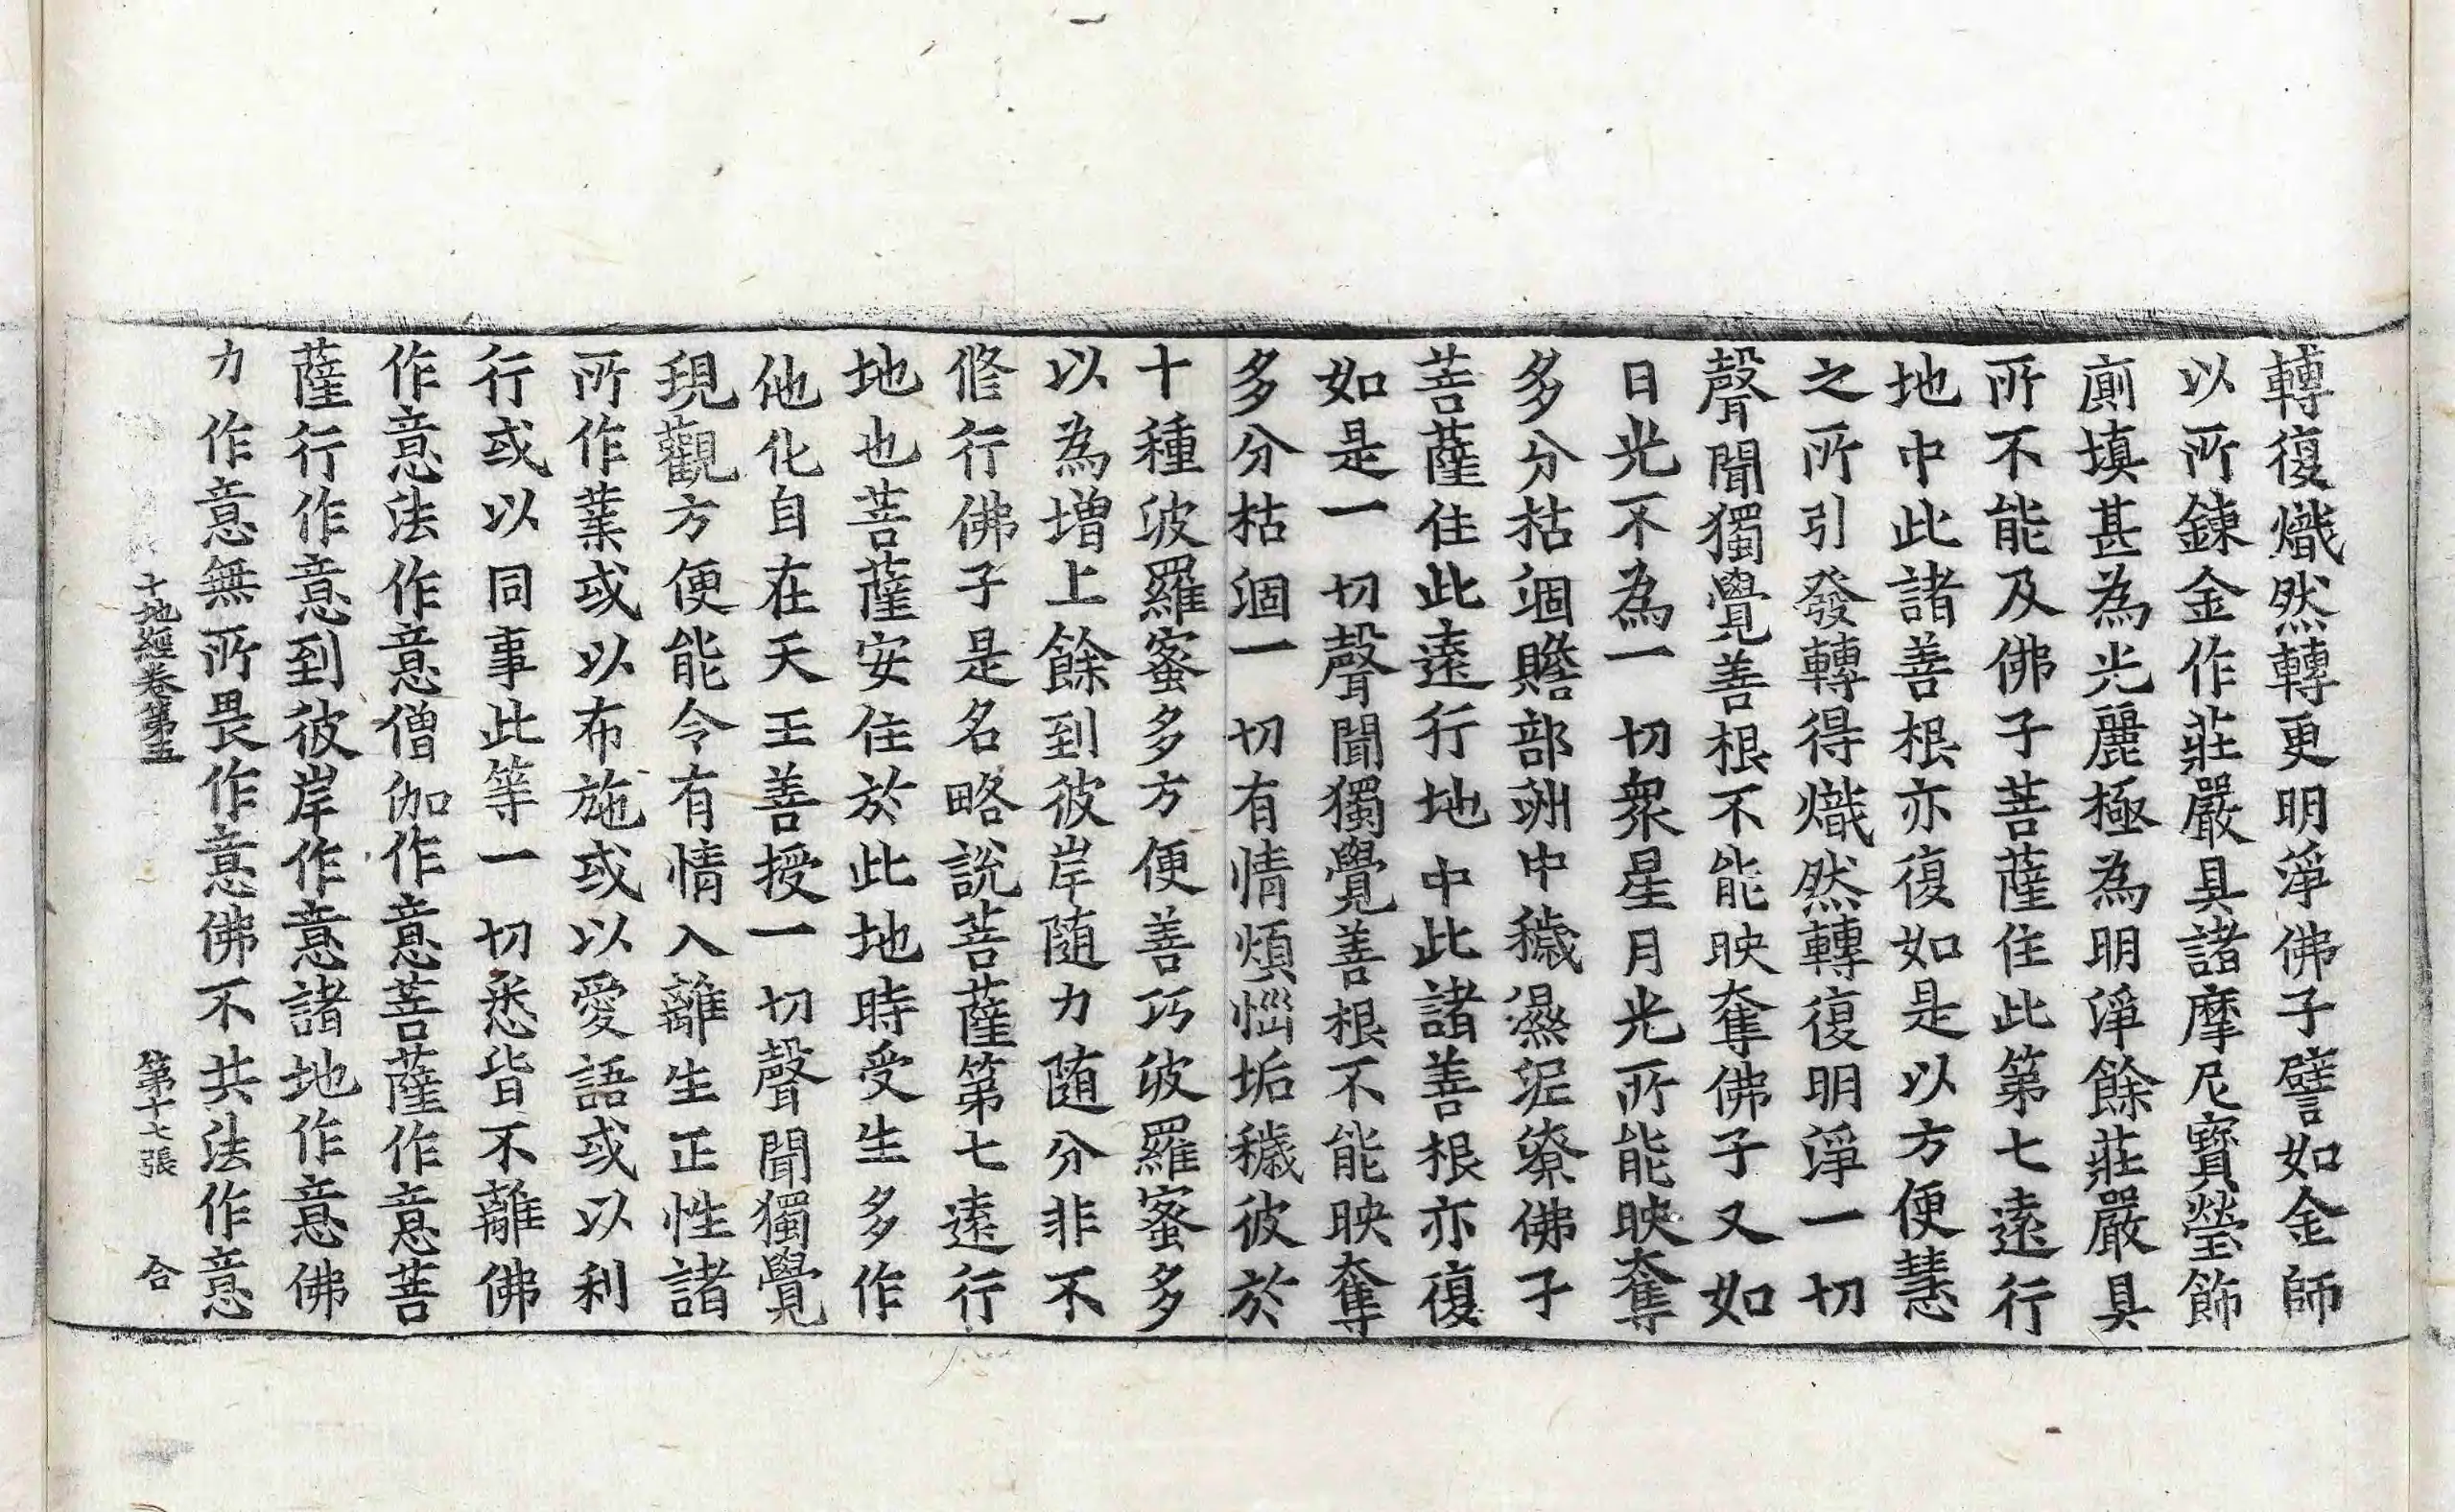 轉復熾然轉更明淨佛子譬如金師
以所鍊金作莊嚴具諸摩尼寶瑩飾
廁填甚為光麗極為明淨餘莊嚴具
所不能及佛子菩薩住此第七遠行
地中此諸善根亦復如是以方便慧
之所引發轉得熾然轉復明淨一切
聲聞獨覺善根不能映奪佛子又如
日光不為一切衆星月光所能映奪
多分枯涸贍部洲中穢濕泥潦佛子
菩薩住此遠行地中此諸善根亦復
如是一切聲聞獨覺善根不能映奪
多分枯涸一切有情煩惱垢穢彼於
十種波羅蜜多方便善巧波羅蜜多
以為增上餘到彼岸随力随分非不
修行佛子是名略說菩薩第七遠行
地也菩薩安住於此地時受生多作
他化自在天王善授一切聲聞獨覺
現觀方便能令有情入離生正性諸
所作業或以布施或以愛語或以利
行或以同事此等一切悉皆不離佛
作意法作意僧伽作意菩薩作意菩
薩行作意到彼岸作意諸地作意佛
力作意無所畏作意佛不共法作意
十地經卷第五　第十七張　合